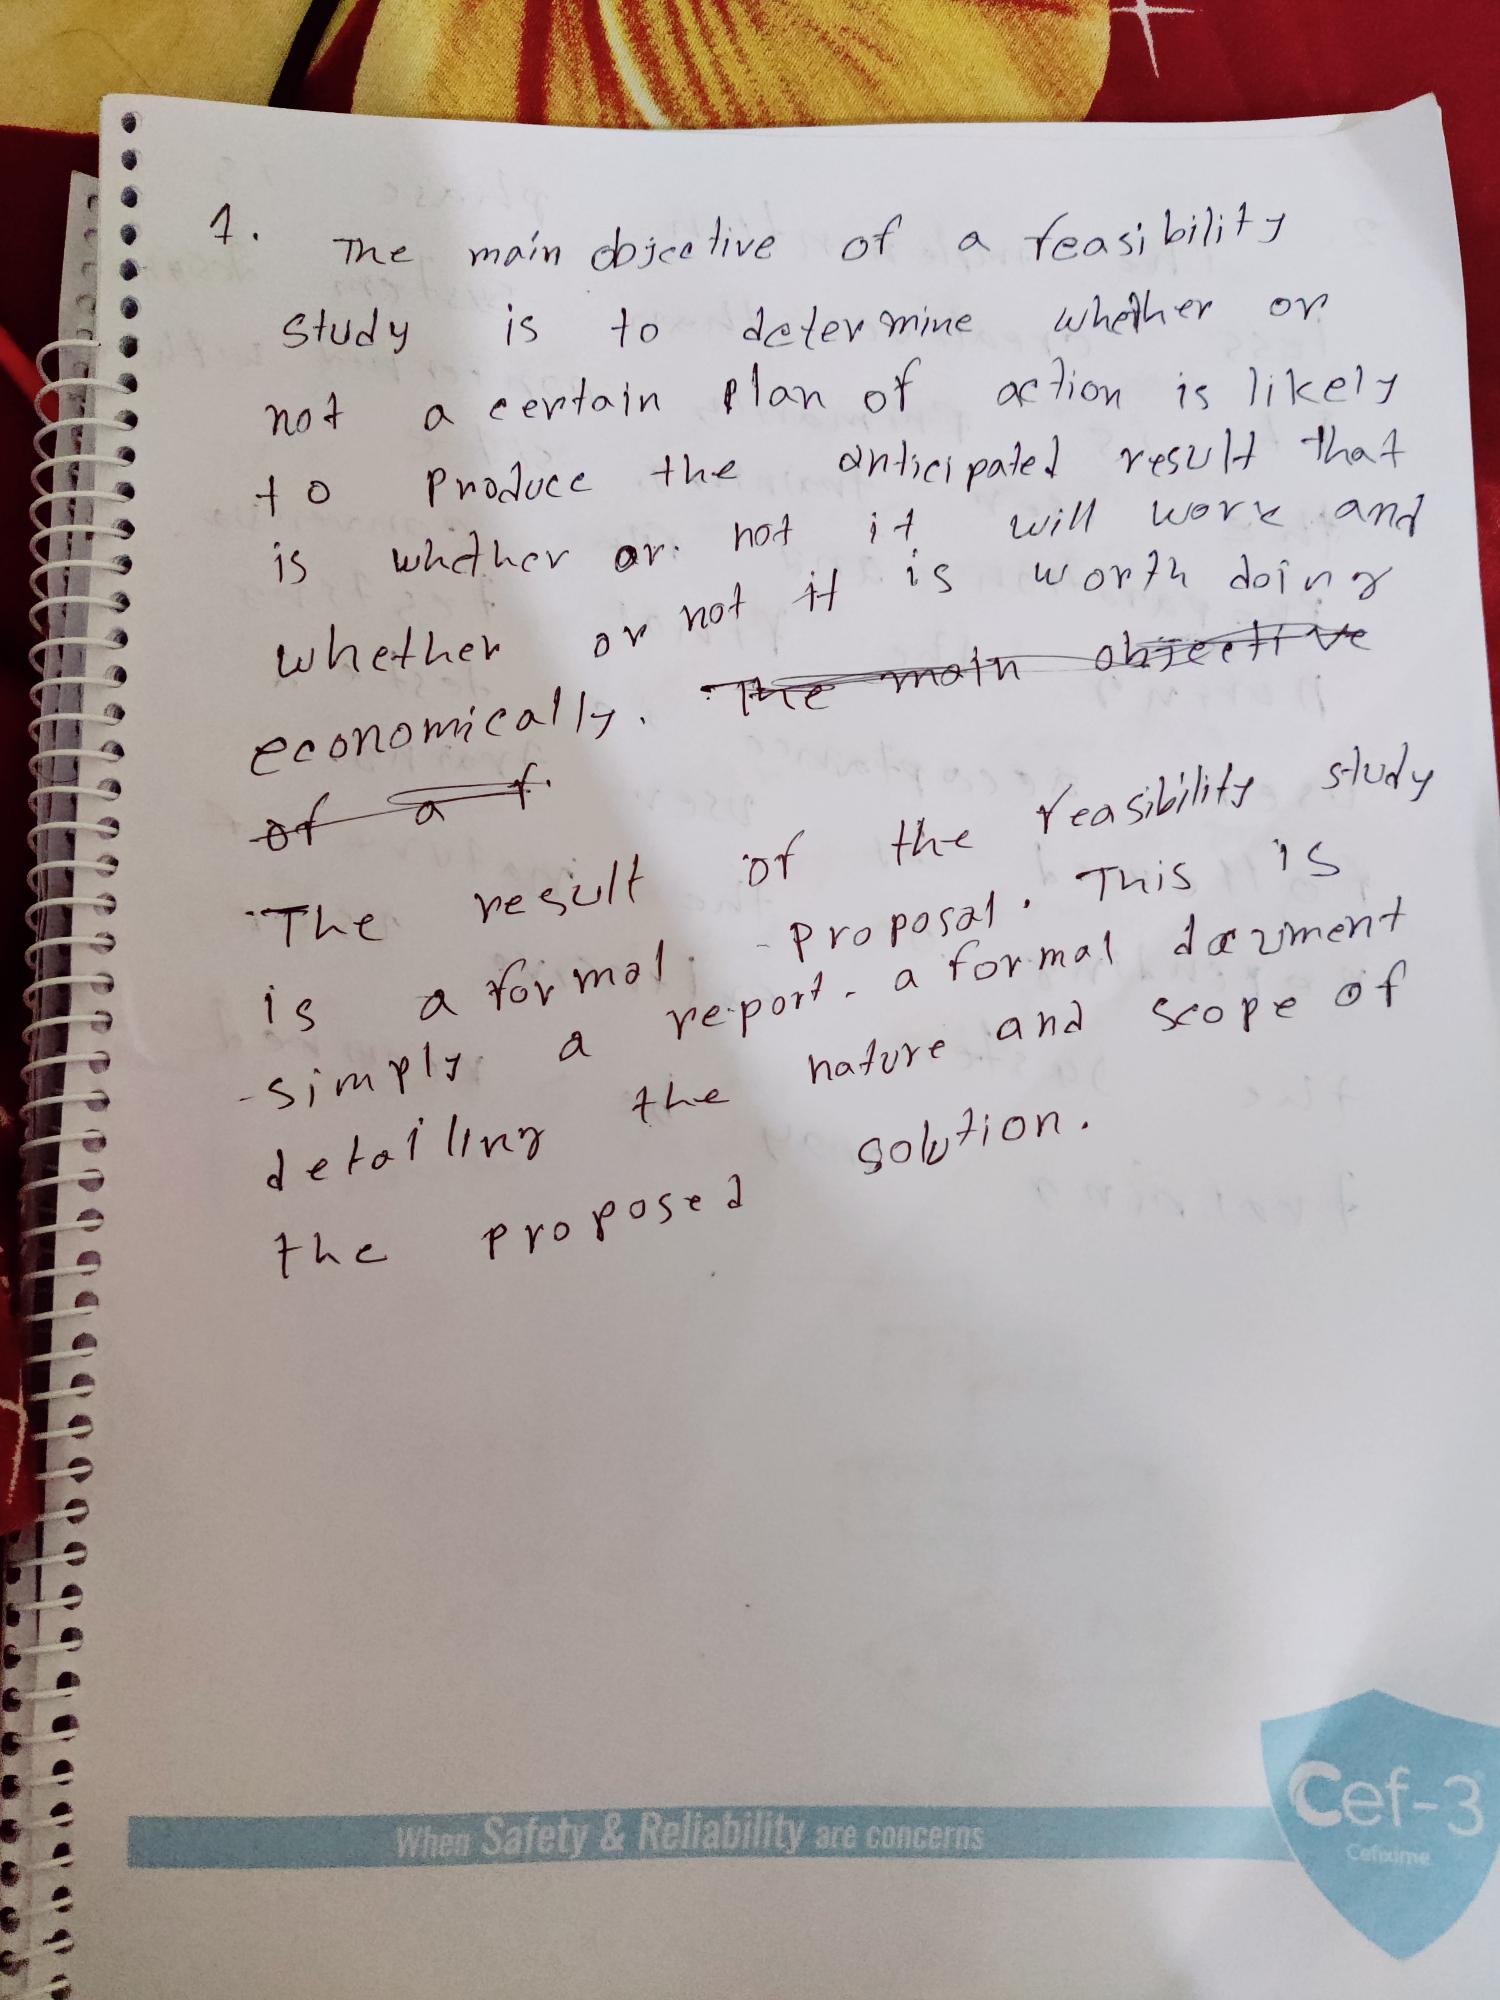 1. The main objective of a feasibility
study is to determine whether or
not a certain plan of action is likely
to produce the anticipated result that
is whether or not it will work and
whether or not it is worth doing
economically. The main objective
of a f.
The result of the feasibility study
is a formal proposal. This is
simply a report - a formal document
detailing the nature and scope of
the proposed solution.
When Safety & Reliability are concerns
Cef-3
Cefixime